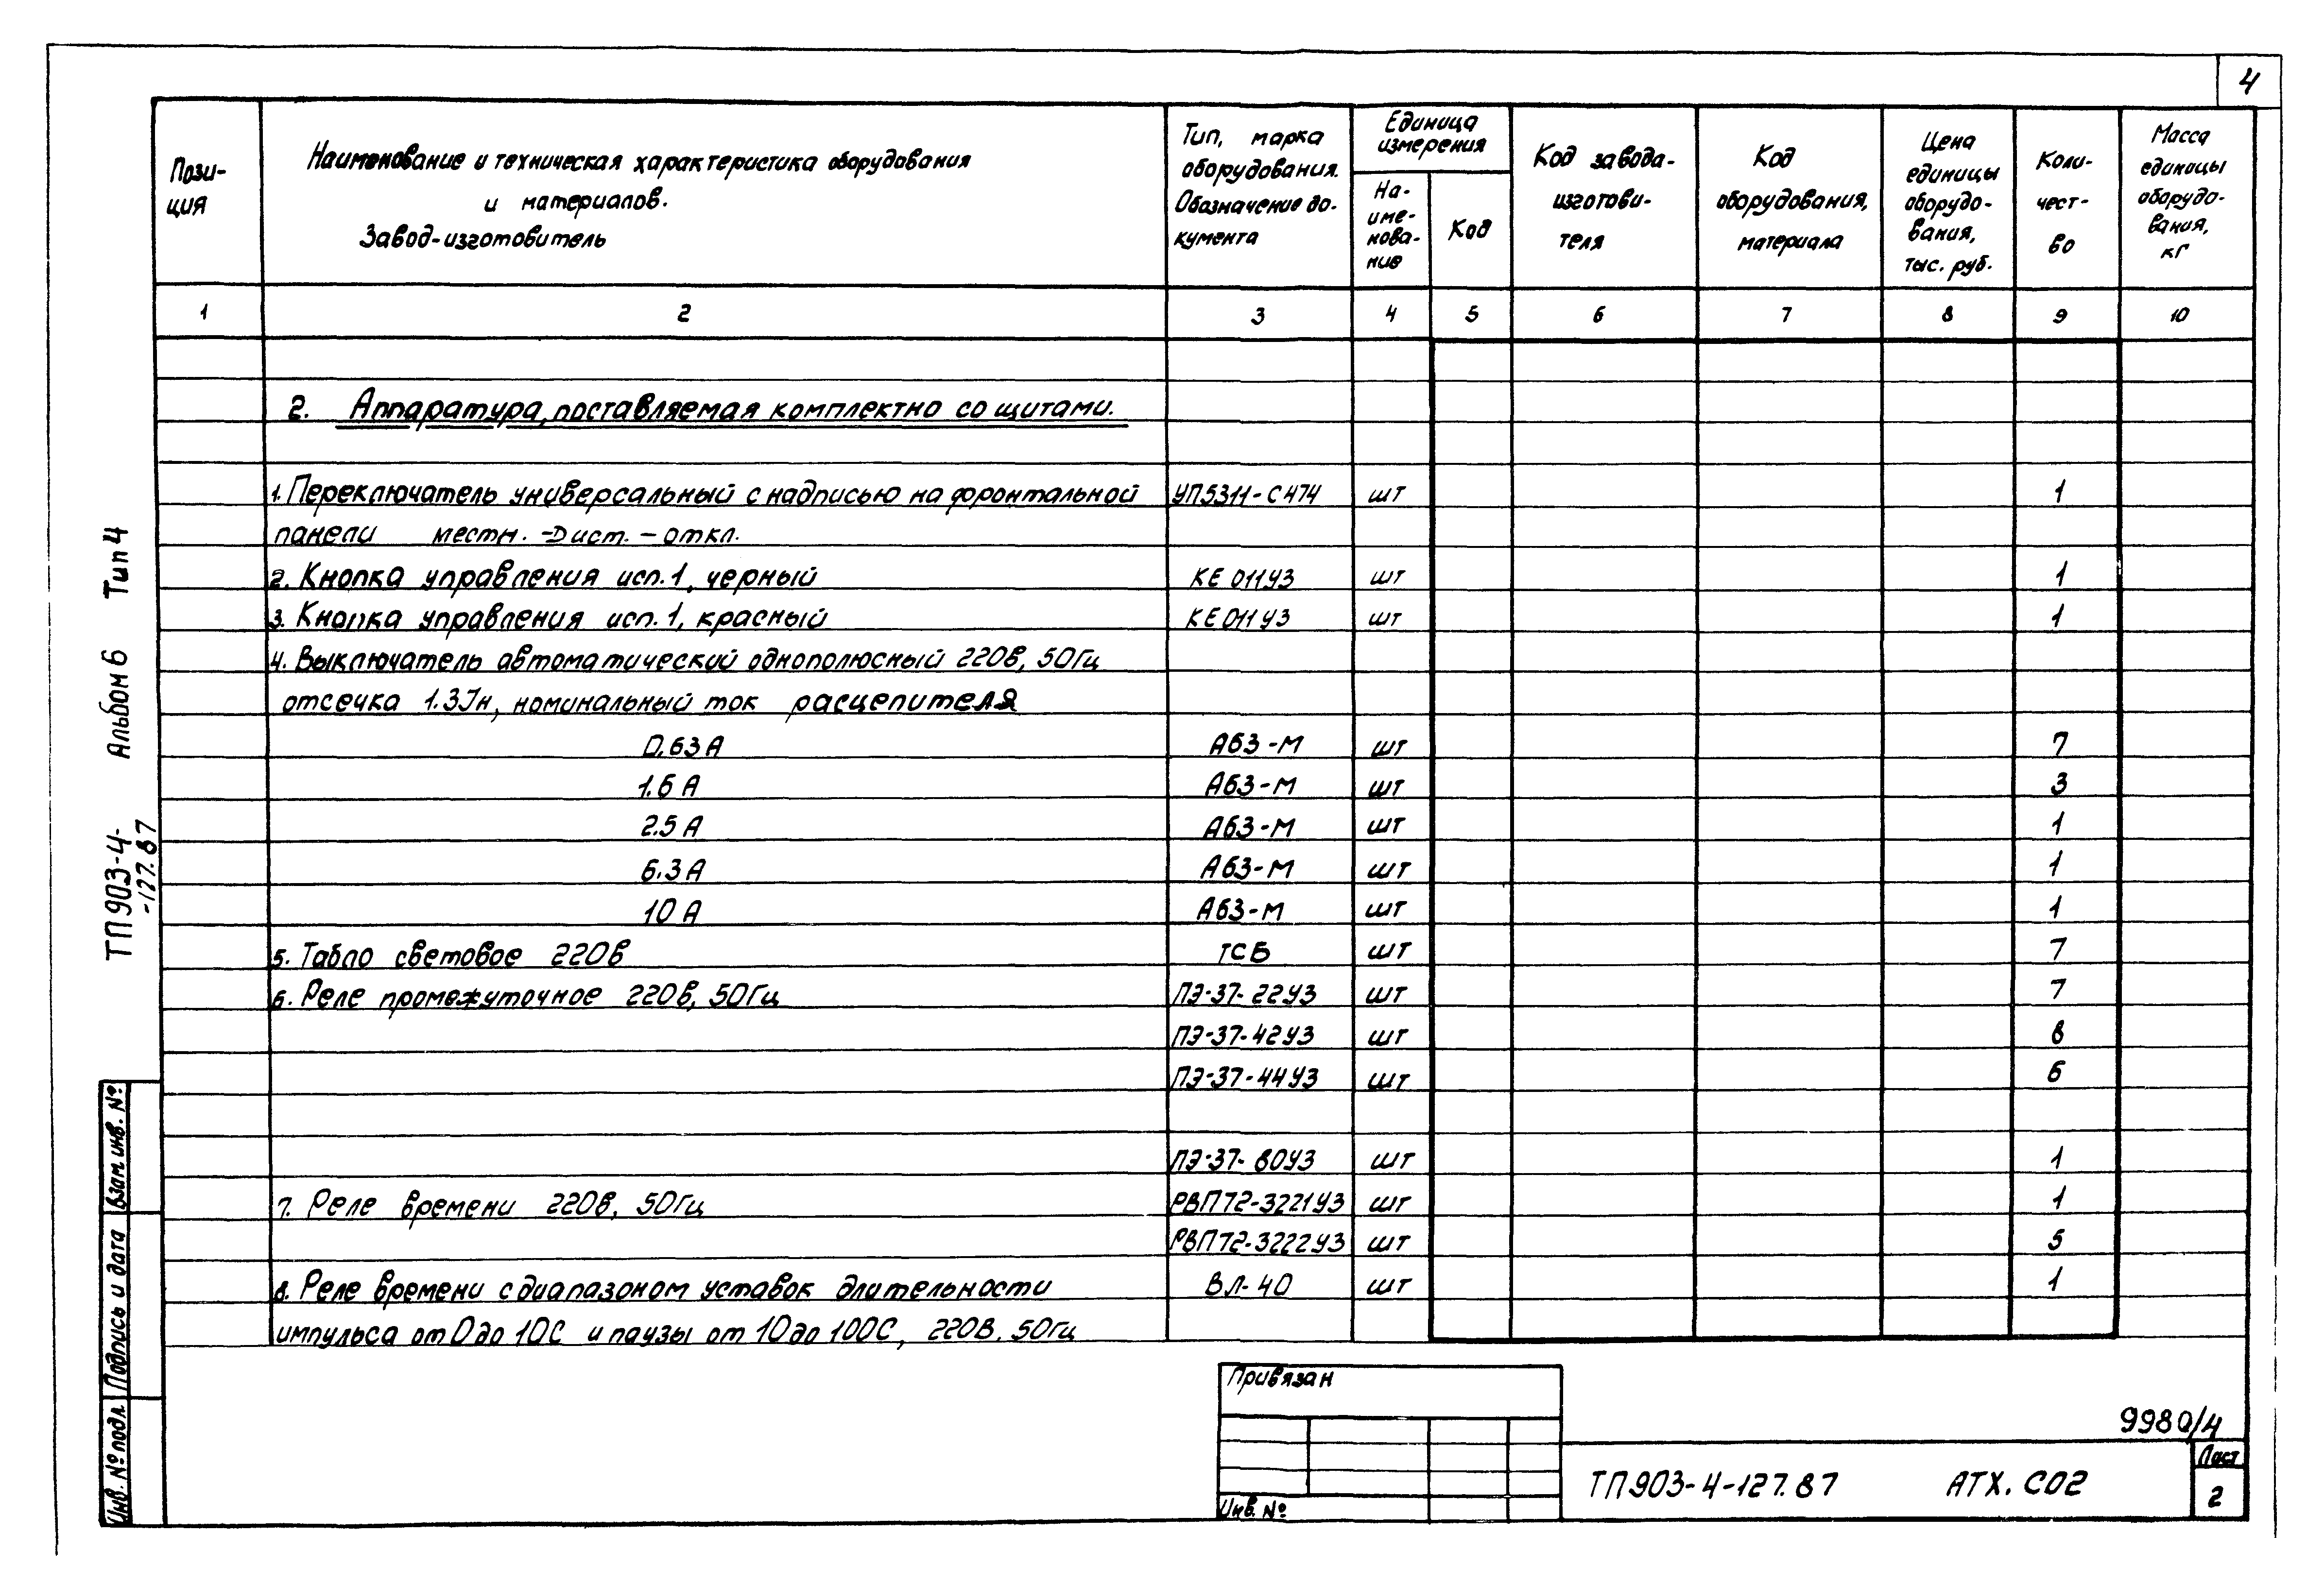 4
Пози-
ция
Наименование и техническая характеристика оборудования
и материалов.
Завод-изготовитель
Тип, марка
оборудования.
Обозначение до-
кумента
Единица
измерения
На-
име-
нова-
ние
Код
Код завода-
изготови-
теля
Код
оборудования,
материала
Цена
единицы
оборудо-
вания,
тыс. руб.
Коли-
чест-
во
Масса
единицы
оборудо-
вания,
кг
1 2 3 4 5 6 7 8 9 10
2. Аппаратура, поставляемая комплектно со щитами.
1. Переключатель универсальный с надписью на фронтальной УП5311-С474 шт 1
панели местн. -Дист. - откл.
2. Кнопка управления исп. 1, черный КЕ 011У3 шт 1
3. Кнопка управления исп. 1, красный КЕ 011У3 шт 1
4. Выключатель автоматический однополюсный 220в, 50Гц
отсечка 1.3Iн, номинальный ток расцепителя
0.63А А63-М шт 7
1.6А А63-М шт 3
2.5А А63-М шт 1
6.3А А63-М шт 1
10А А63-М шт 1
5. Табло световое 220в ТСБ шт 7
6. Реле промежуточное 220в, 50Гц ПЭ-37-22У3 шт 7
ПЭ-37-42У3 шт 8
ПЭ-37-44У3 шт 6
ПЭ-37-80У3 шт 1
7. Реле времени 220в, 50Гц РВП72-3221У3 шт 1
РВП72-3222У3 шт 5
8. Реле времени с диапазоном уставок длительности ВЛ-40 шт 1
импульса от 0 до 10С и паузы от 10 до 100С, 220В, 50Гц
Привязан
Инв. №
9980/4
ТП903-4-127.87 АТХ. С02
Лист
2
ТП903-4-
-127.87
Альбом 6 Тип 4
Взам инв. №
Подпись и дата
Инв. № подл